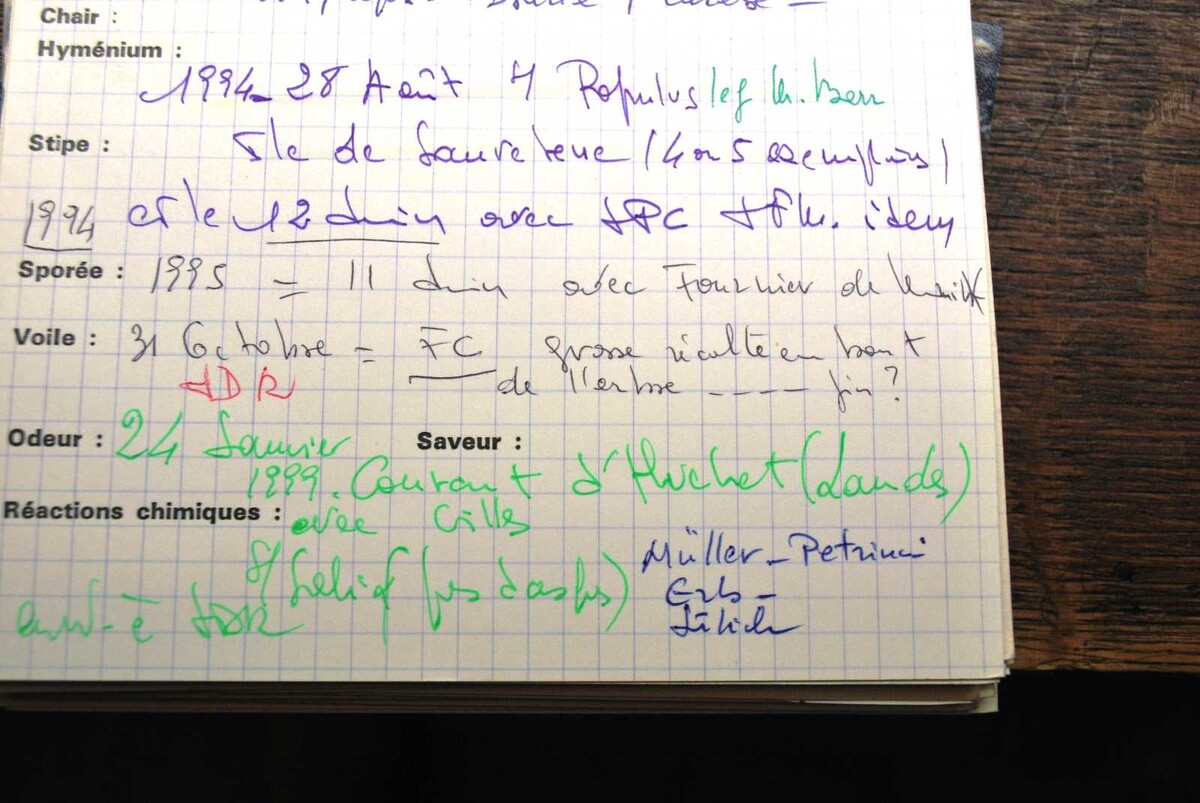 Chair :
Hyménium :
1994 - 28 Août Populus leg
Stipe : Ile de Sauveterre (4 ou 5 exemplaires)
1994 et le 12 Juin avec JPC idem
Sporée : 1995 = 11 Juin avec Fournier de
Voile : 31 Octobre = FC grosse récolte en bout
JDR de l'arbre ---- fin ?
Odeur : 24 Janvier Saveur :
1999. Courant d'Huchet (Landes)
Réactions chimiques : avec Gilles
S/ Müller - Petrini
env. à JDR Erb -